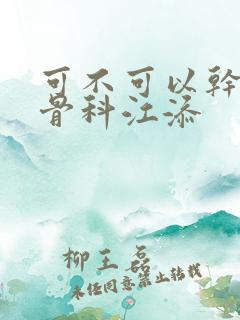 可不可以幹
骨科江添
柳王磊
未经同意禁止转载